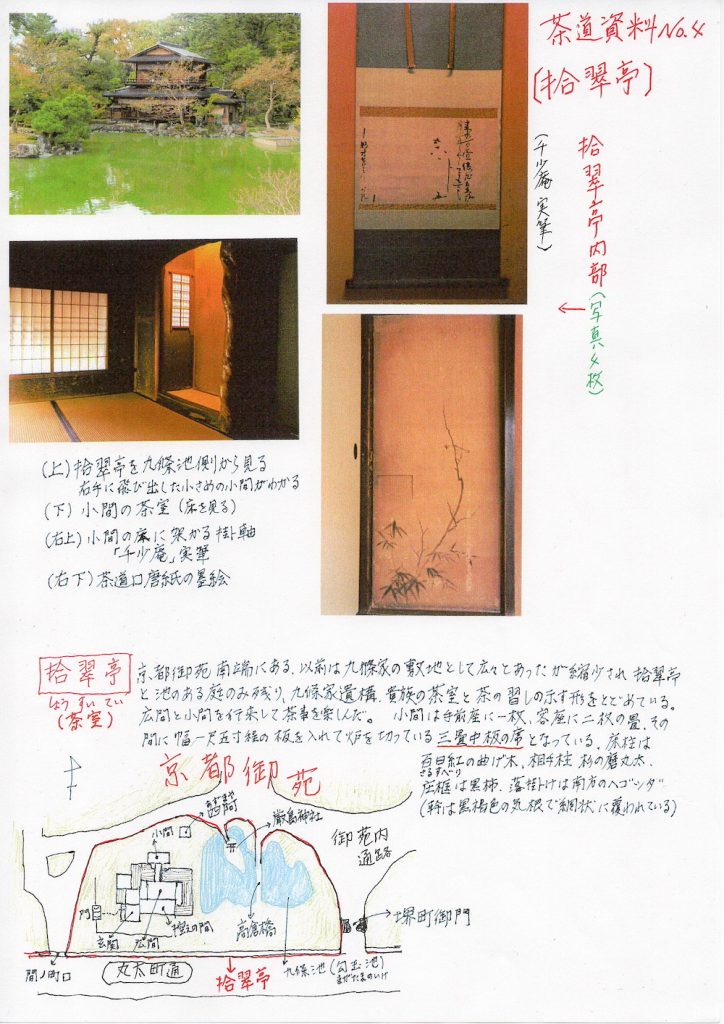 茶道資料No.4
〔拾翠亭〕
拾翠亭内部(写真4枚)
(千少庵実筆)
(上)拾翠亭を九條池側から見る
右手に飛び出した小さめの小間がわかる
(下)小間の茶室(床を見る)
(右上)小間の床に架かる掛軸
「千少庵」実筆
(右下)茶道口唐紙の墨絵
拾翠亭
しゅうすいてい
(茶室)
京都御苑南端にある、以前は九條家の敷地として広々とあったが縮少され拾翠亭
と池のある庭のみ残り、九條家遺構、貴族の茶室と茶の習しの示す形をとどめている。
広間と小間を行来して茶事を楽しんだ。 小間は手前座に一枚、客座に二枚の畳、その
間に幅一尺五寸程の板を入れて炉を切っている三畳中板の席となっている、床柱は
百日紅の曲げ木、相手柱 杉の磨丸太、
さるすべり
床框は黒柿、落掛けは南方のヘゴシダ
(幹は黒褐色の気根で網状に覆われている)
京都御苑
四阿
あずまや
小間
厳島神社
御苑内
通路
門
玄関
広間
控えの間
高倉橋
堺町御門
間ノ町口
丸太町通
拾翠亭
九條池(勾玉池)
まがたまのいけ